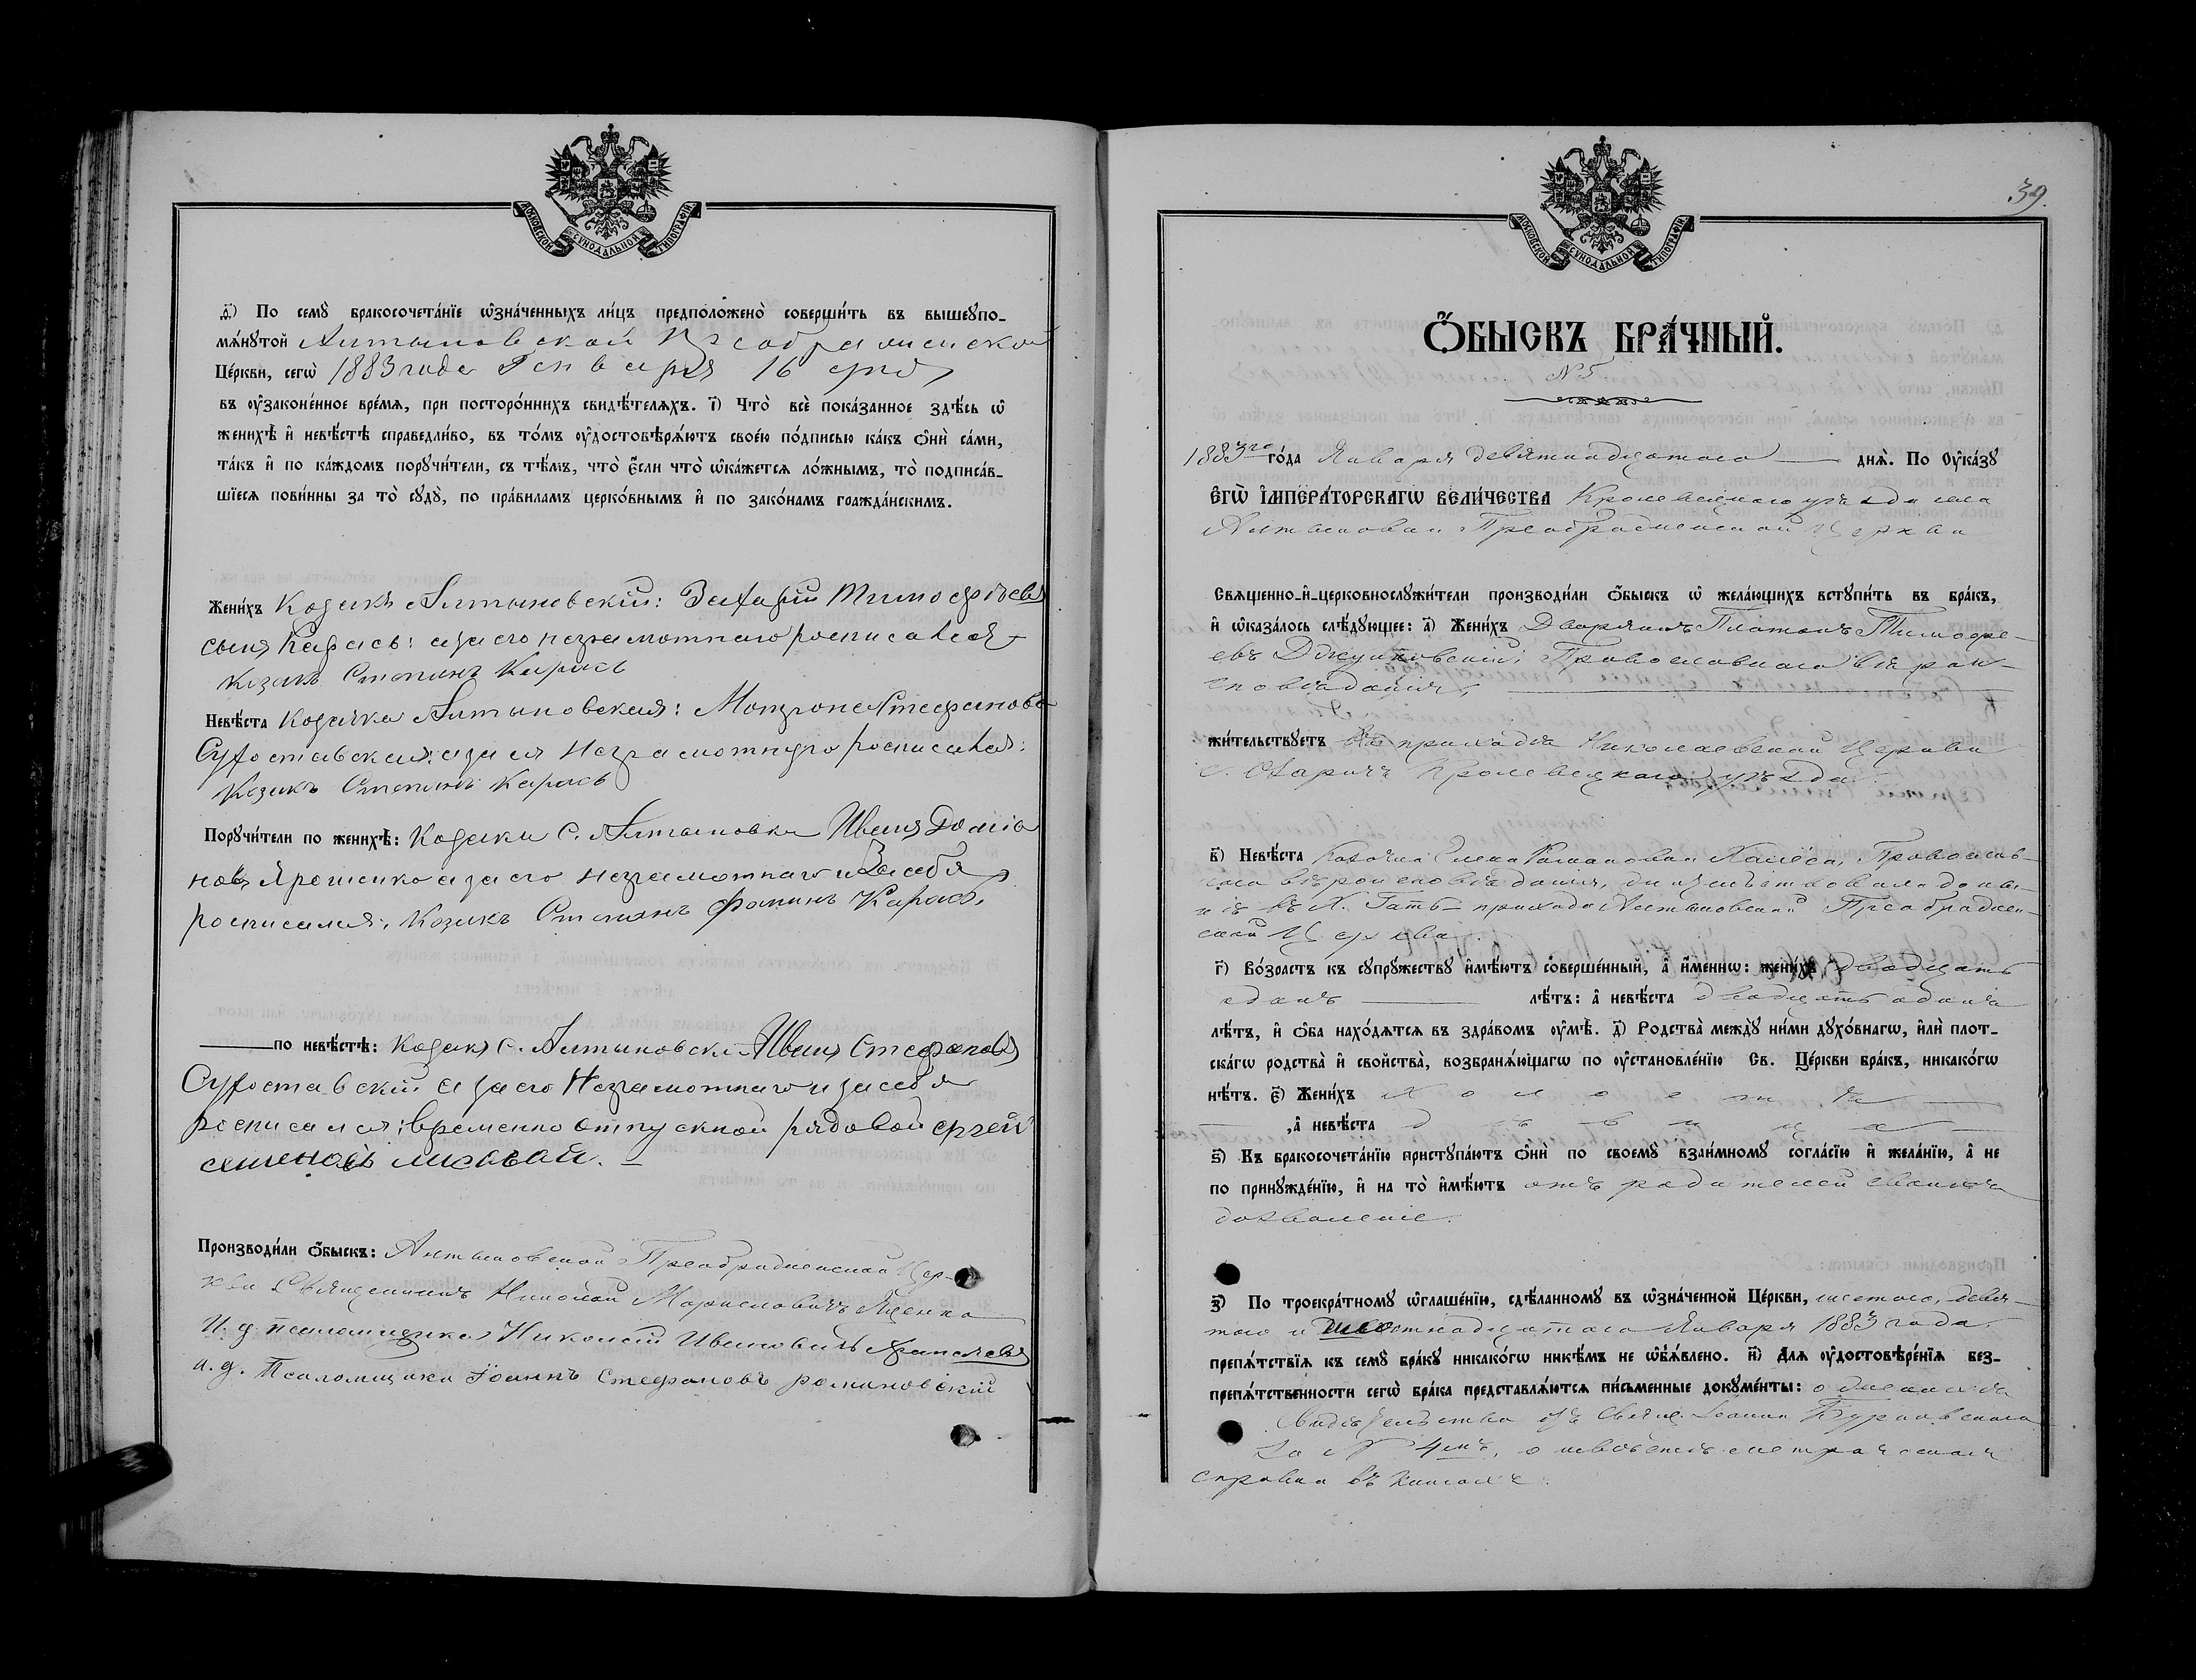 МОСКОВСКОЙ СУНОДАЛЬНОЙ ТИПОГРАФІИ
д҃і) По семꙋ̀ бракосочета́нїе ѡ҆зна́ченныхъ ли́цъ предположено̀ соверши́ть въ вышеꙋпо-
мѧ́нꙋтой Алтыновской Преображенской
Це́ркви, сегѡ̀ 1883 года Генваря 16 дня
въ ᲂу҆зако́ненное вре́мѧ, при посторо́ннихъ свидѣ́телѧхъ. і҃) Что̀ всѐ пока́занное здѣ́сь ѡ҆
женихѣ̀ и҆ невѣ́стѣ справедли́во, въ то́мъ ᲂу҆достовѣрѧ́ютъ свое́ю по́дписью ка́къ ѻ҆нѝ са́ми,
та́къ и҆ по ка́ждомъ порꙋчи́тели, съ тѣ́мъ, что̀ є҆́сли что̀ ѡ҆ка́жетсѧ ло́жнымъ, то̀ подписа́в-
шїесѧ пови́нны за то̀ сꙋдꙋ̀, по пра́виламъ церко́внымъ и҆ по зако́намъ гражда́нскимъ.
Жени́хъ Козакъ Алтыновскій: Захарій Тимофѣевъ
сынъ Карась: а за его неграмотнаго росписался
Козакъ Степанъ Карась
Невѣ́ста Козачка Алтыновская: Мотрона Стефанова
Сухоставская: а за ея неграмотную росписался:
Козакъ Степанъ Карась
Порꙋчи́тели по женихѣ̀: Козаки с. Алтыновки Иванъ
новъ Ярошенко а за его неграмотнаго и за себя
росписался, Козакъ Степанъ Фоминъ Карась.
по невѣ́стѣ: Козакъ с. Алтыновки Иванъ Стефановъ
Сухоставскій а за его неграмотнаго и за себя
росписался: временно отпускной рядовой
Производи́ли ѻ҆́быскъ: Алтыновской Преображенской Цер-
кви Священникъ Николай Яценко
И. д. псаломщика Николай Ивановичъ
и. д. Псаломщика Іоаннъ Стефановъ Романовскій
39.
МОСКОВСКОЙ СУНОДАЛЬНОЙ ТИПОГРАФІИ
Ѻ҆́БЫСКЪ БРА́ЧНЫЙ.
№ 5.
1883го го́да Января девятнадцатого днѧ̀. По ᲂу҆ка́зꙋ
Є҆ГѠ̀ І҆МПЕРА́ТОРСКАГѠ ВЕЛИ́ЧЕСТВА Кролевецкаго уѣзда села
Алтыновки Преображенской Церкви
Свѧще́нно-и҆-церковнослꙋжи́тели производи́ли ѻ҆́быскъ ѡ҆ жела́ющихъ встꙋпи́ть въ бра́къ,
и҆ ѡ҆каза́лось слѣ́дꙋющее: а҃) Жени́хъ Дворянинъ Платонъ Тимофе-
евъ Православнаго вѣроис-
повѣданія,
жи́тельствꙋетъ въ приходѣ Николаевской Церкви
с. Кролевецкаго уѣзда.
в҃) Невѣ́ста Козачка Елена Романова Православ-
наго вѣроисповѣданія, жительствовала до ны-
нѣ въ Х. Гать прихода Алтыновской Преображен-
ской Церкви.
г҃) Во́зрастъ къ сꙋпрꙋ́жествꙋ и҆мѣ́ютъ соверше́нный, а҆ и҆́меннѡ: жени́хъ двадцать
одинъ лѣ́тъ: а҆ невѣ́ста двадцать одинъ
лѣ́тъ, и҆ ѻ҆́ба нахо́дѧтсѧ въ здра́вомъ ᲂу҆мѣ̀. д҃) Родства̀ ме́ждꙋ ни́ми дꙋхо́внагѡ, и҆лѝ плот-
ска́гѡ родства̀ и҆ свойства̀, возбранѧ́ющагѡ по ᲂу҆становле́нїю Св. Це́ркви бра́къ, никако́гѡ
нѣ́тъ. є҃) Жени́хъ холостъ
,а҆ невѣ́ста дѣвица
ѕ҃) Къ бракосочета́нїю пристꙋпа́ютъ ѻ҆нѝ по своемꙋ̀ взаи́мномꙋ согла́сїю и҆ жела́нїю, а҆ не
по принꙋжде́нїю, и҆ на то̀ и҆мѣ́ютъ отъ родителей своихъ
дозволеніе.
з҃) По троекра́тномꙋ ѡ҆глаше́нїю, сдѣ́ланномꙋ въ ѡ҆зна́ченной Це́ркви, шестого, девя-
таго и шестнадцатаго Января 1883 года
препѧ́тствїѧ къ семꙋ̀ бра́кꙋ никако́гѡ никѣ́мъ не ѡ҆б̾ѧ́влено. и҃) Длѧ ᲂу҆достовѣре́нїѧ без-
препѧ́тственности сегѡ̀ бра́ка представлѧ́ютсѧ пи́сьменные докꙋме́нты: о женихѣ
Свидѣтельство отъ Свящ. Іоанна
за № 4мъ, о невѣстѣ
справка въ